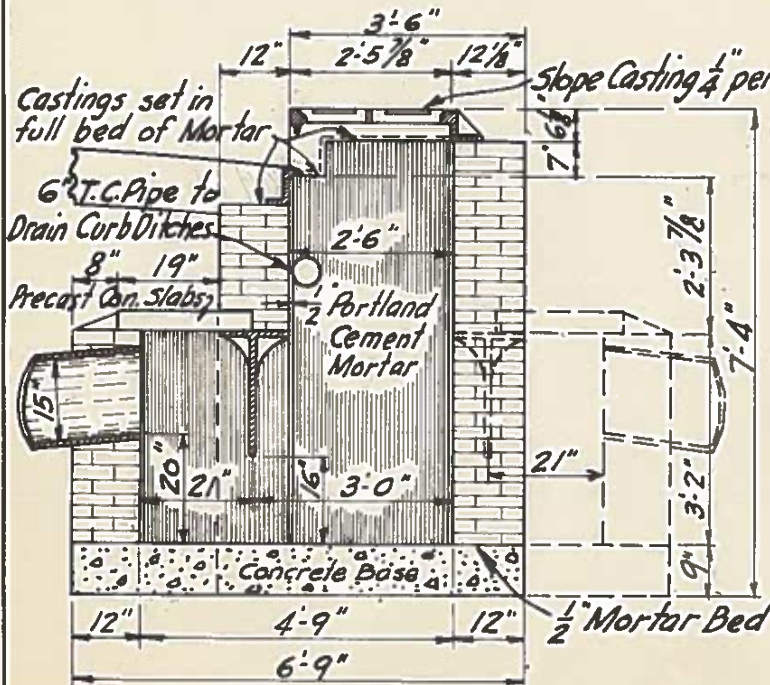 3'-6"
12" 2'-5 7/8" 12 1/8"
Slope Casting 1/4" per
Castings set in
full bed of Mortar
6"
7"
6" T.C. Pipe to
Drain Curb Ditches
2'-6"
2'-3 7/8"
8" 19"
Precast Con. Slabs
1/2" Portland
Cement
Mortar
7'-4"
15"
20"
21"
16"
3'-0"
21"
3'-2"
Concrete Base
9"
1/2" Mortar Bed
12" 4'-9" 12"
6'-9"